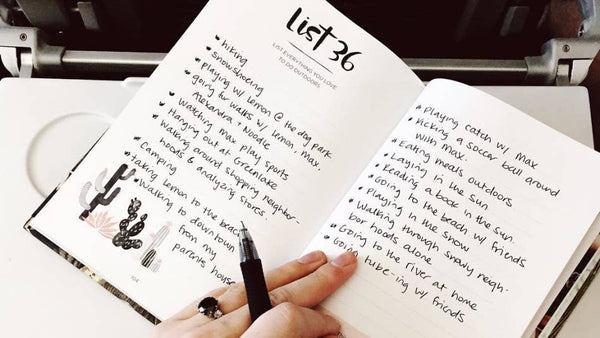 List 36
LIST EVERYTHING YOU LOVE
TO DO OUTDOORS
hiking
snowshoeing
playing w/ Lemon @ the dog park
going for walks w/ Lemon, Max,
Alexandra + Noodle
Watching max play sports
Hanging out at Greenlake
Walking around shopping neighbor-
hoods & analyzing stores.
Camping
taking Lemon to the beach
Walking to downtown
from my
parents house
104
Playing catch w/ Max
Kicking a soccer ball around
with max.
Eating meals outdoors
Laying in the sun
Reading a book in the sun.
Going to the beach w/ friends
Playing in the snow
Walking through snowy neigh-
bor hoods alone
Going to the river at home
Going tube-ing w/ friends